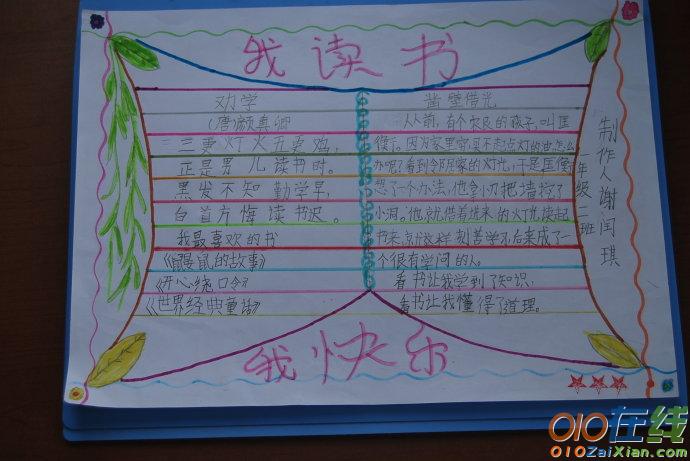 我读书
劝学
(唐)颜真卿
三更灯火五更鸡,
正是男儿读书时。
黑发不知勤学早,
白首方悔读书迟。
我最喜欢的书
《鼹鼠的故事》
《开心绕口令》
《世界经典童话》
凿壁借光
从前,有个农民的孩子,叫匡
衡。因为家里穷,买不起点灯的油,怎么
办呢?看到邻居家的灯光,于是匡衡
想了一个办法,他拿小刀把墙挖了
小洞。他就借着进来的灯光读起
书来,
刻苦学习后来成了一
个很有学问的人。
看书让我学到了知识,
看书让我懂得了道理。
年级二班
制作人谢闰琪
我快乐
010在线
010ZaiXian.com